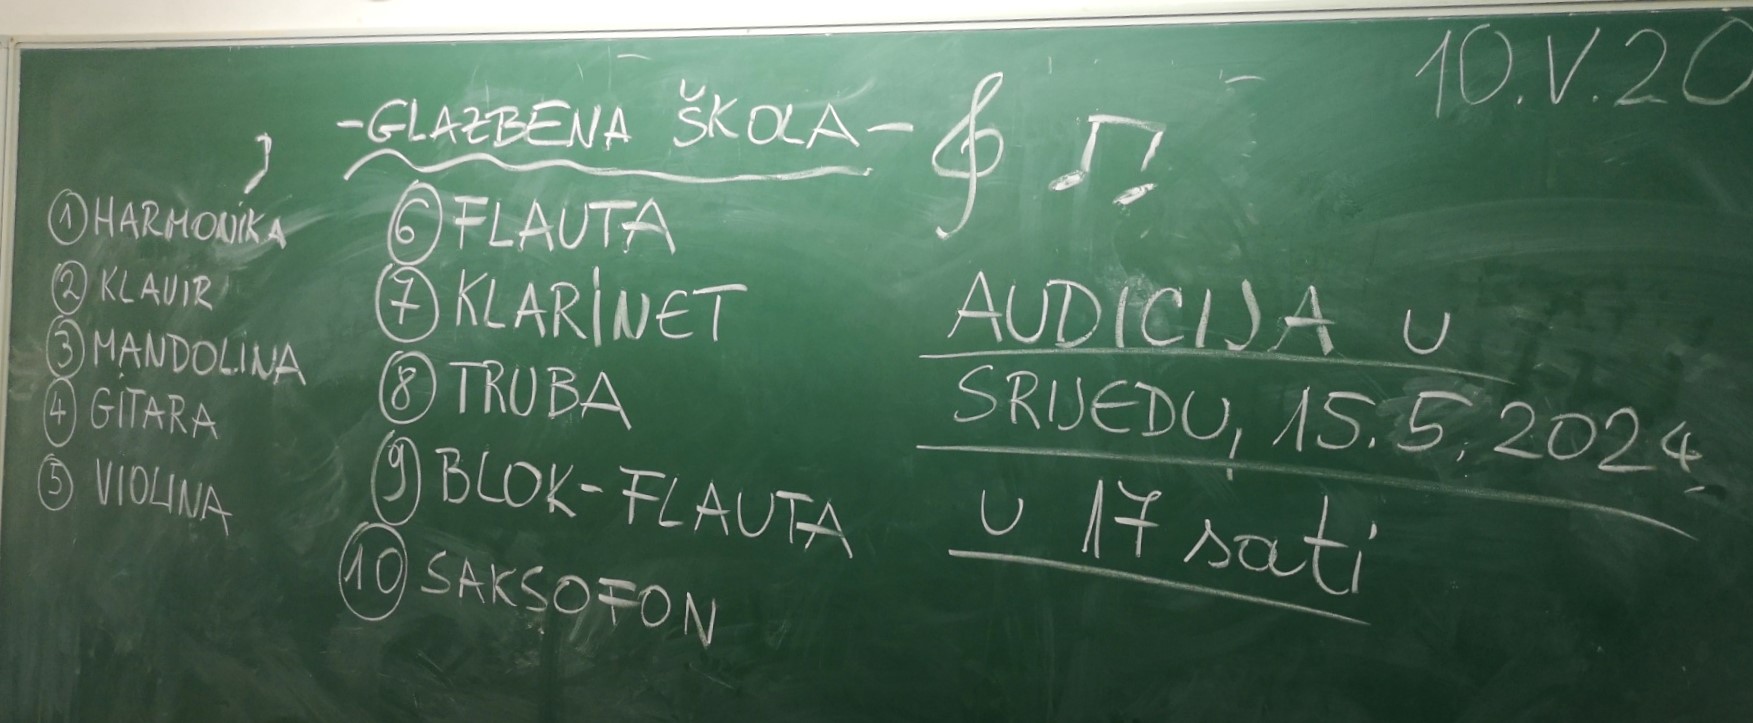 10.V.20
-GLAZBENA ŠKOLA-
1 HARMONIKA
2 KLAVIR
3 MANDOLINA
4 GITARA
5 VIOLINA
6 FLAUTA
7 KLARINET
8 TRUBA
9 BLOK-FLAUTA
10 SAKSOFON
AUDICIJA U
SRIJEDU, 15.5.2024
U 17 sati